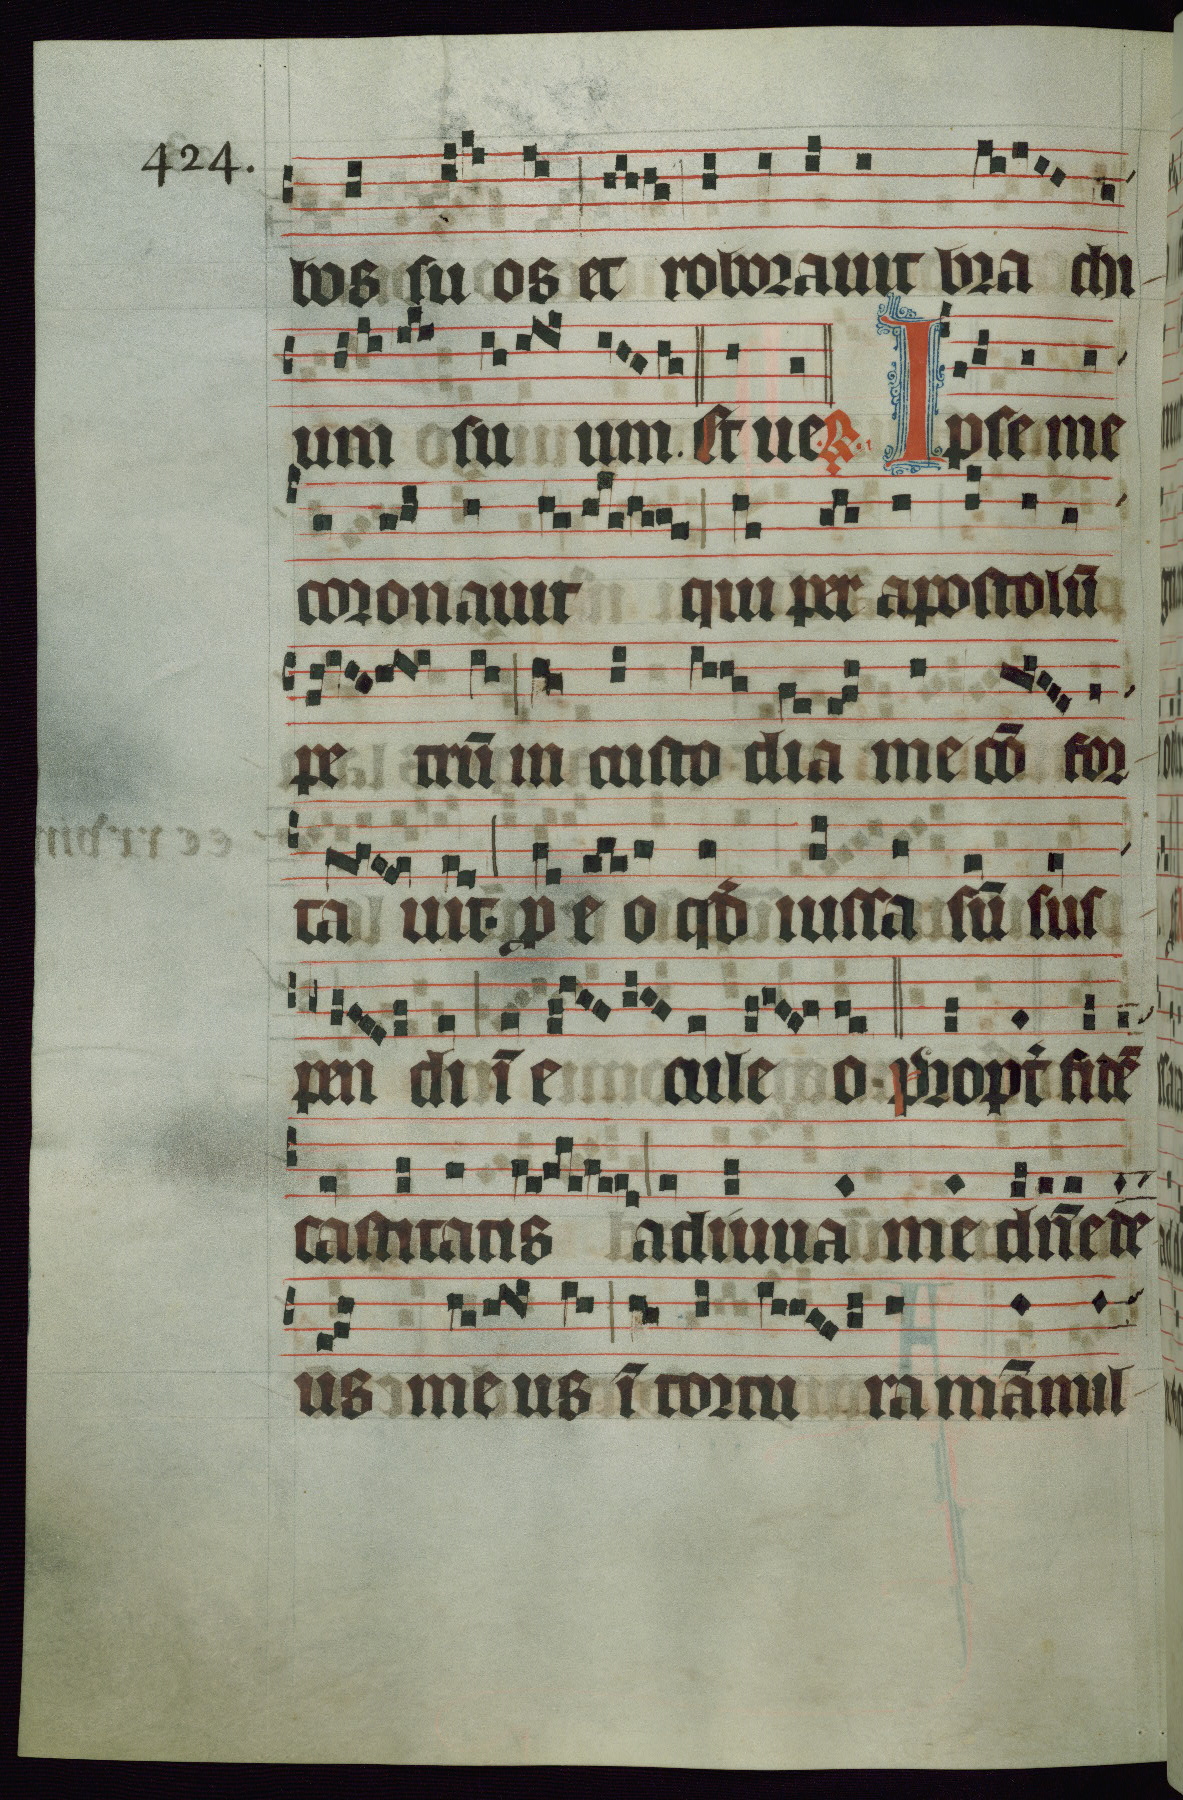 424.
bos su os et roborauit bra chi
um su um. Et ue R. Ipse me
coronauit qui per apostolū
pe trū in custo dia me cō for
ta uit. p e o qd iussa sū sus
pen di ī e cule o. Propt fidē
castitatis adiuua me dn̄e de
us meus ī tortu ra mā mil